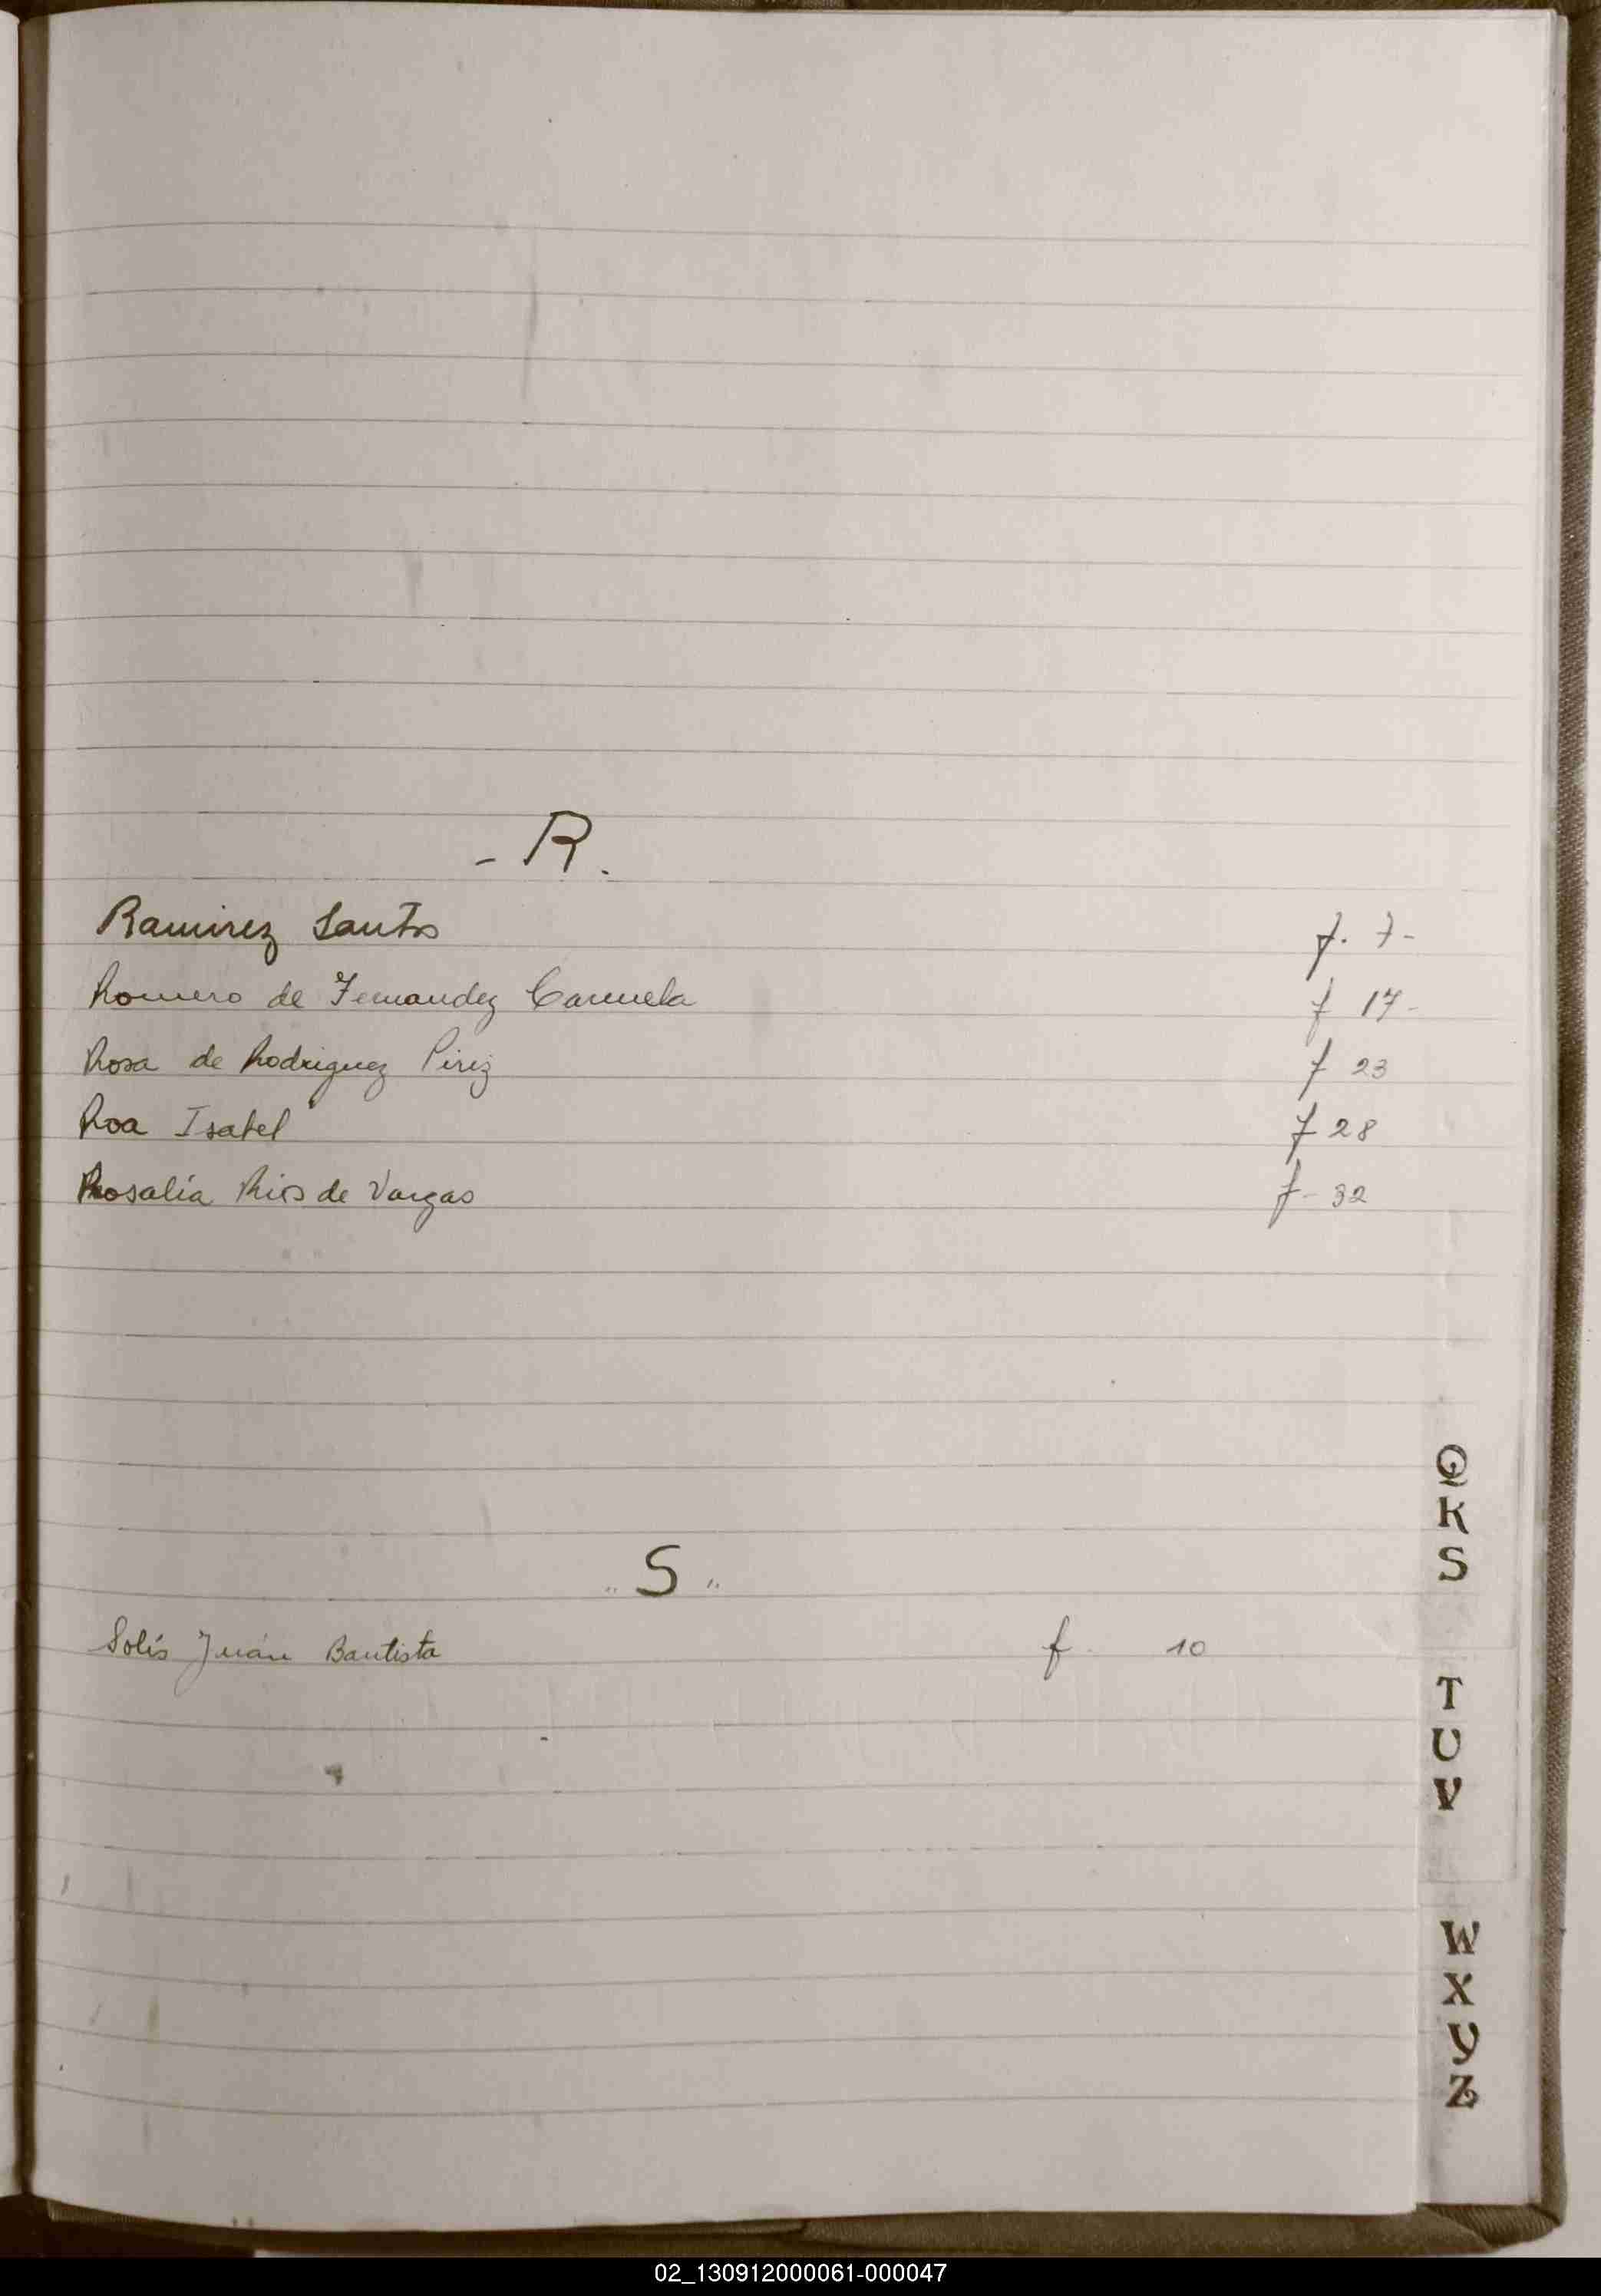 - R.
Ramirez Santos f. 7-
Romero de Fernandez Carmela f 17-
Rosa de Rodriguez Pirez f 23
Roa Isabel f 28
Rosalía Rios de Vargas f- 32
Q
R
S
" S "
Solís Juán Bautista f- 10
T
U
V
W
X
Y
Z
02_130912000061-000047